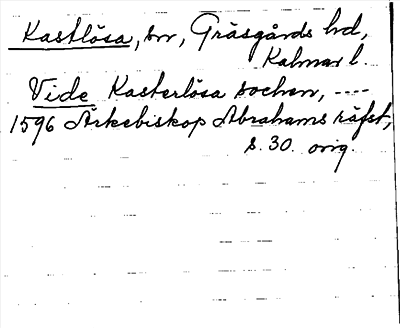 Kastlösa, sn, Gräsgårds hd,
Kalmar l.
Vide Kasterlösa sochen, ----
1596 Ärkebiskop Abrahams räfst,
s. 30. orig.